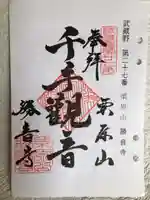 武蔵野 第二十七番 栗原山 勝音寺
奉拝
栗原山
千手観音
勝音寺